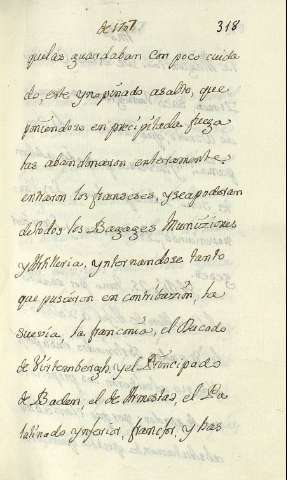 de 1707 318
quelas guardaban con poco cuida
do, este ynopinado asalto, que
poniendose en precipitada fuga
las abandonaron enteramente
entraron los franseses, yseapoderan
detodos los Bagages Muniziones
y Artilleria, ynternandose tanto
que pusieron en contribuzion, ha
suevia la franconia, el Ducado
de Virtembergh, y el Prinzipado
de Baden, el de Armestas, el Pa
latinado ynferior, francfor, y has